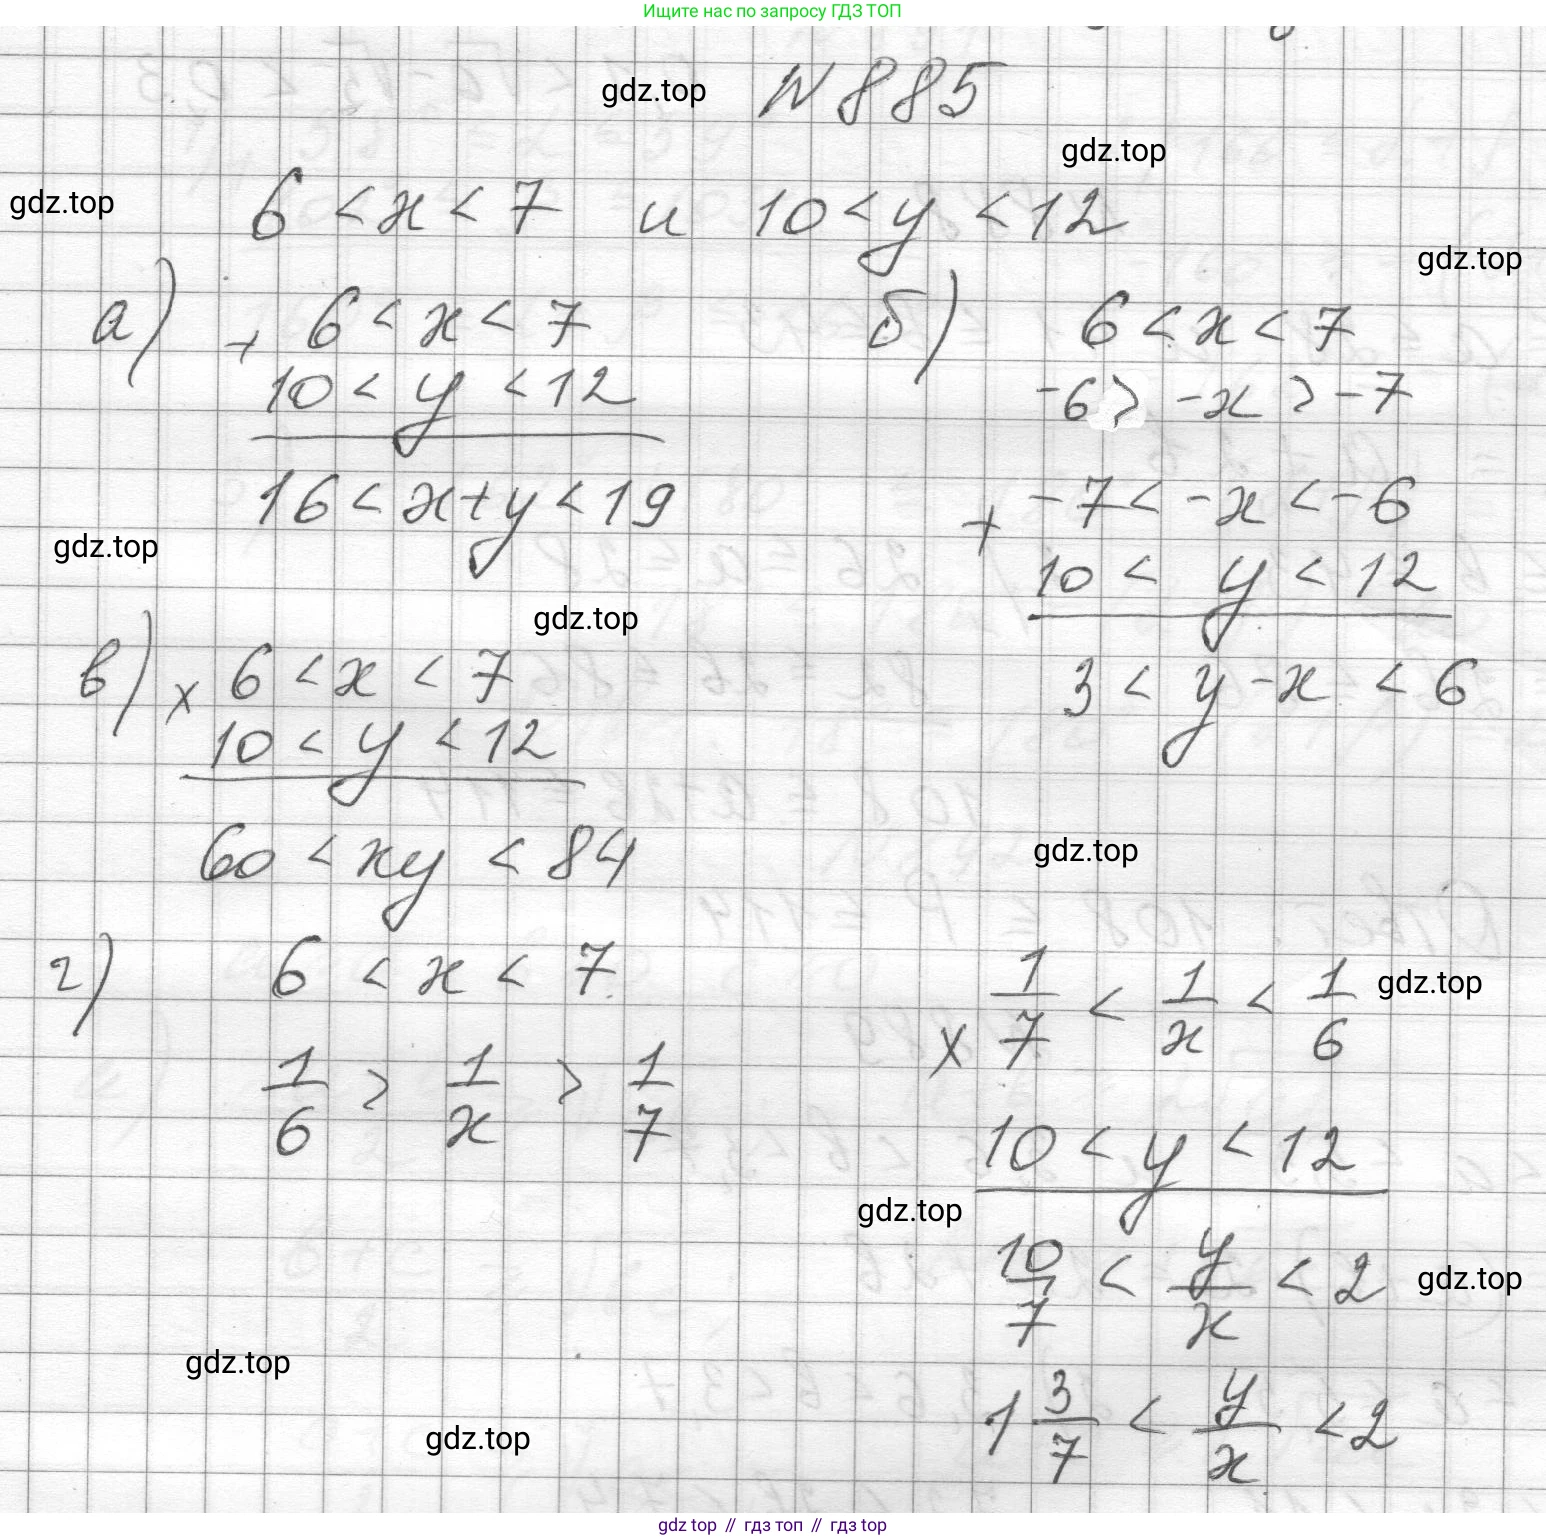 Ищите нас по запросу ГДЗ ТОП
gdz.top N 885
gdz.top
gdz.top 6 < x < 7 и 10 < y < 12
gdz.top
а) + 6 < x < 7
10 < y < 12
16 < x+y < 19
gdz.top
б) 6 < x < 7
-6 > -x > -7
+ -7 < -x < -6
10 < y < 12
3 < y - x < 6
gdz.top
в) x 6 < x < 7
10 < y < 12
60 < xy < 84
gdz.top
г) 6 < x < 7
1/6 > 1/x > 1/7
x 1/7 < 1/x < 1/6
gdz.top
10 < y < 12
gdz.top
10/7 < y/x < 2
gdz.top
gdz.top
1 3/7 < y/x < 2
gdz.top
gdz top // гдз топ // гдз top